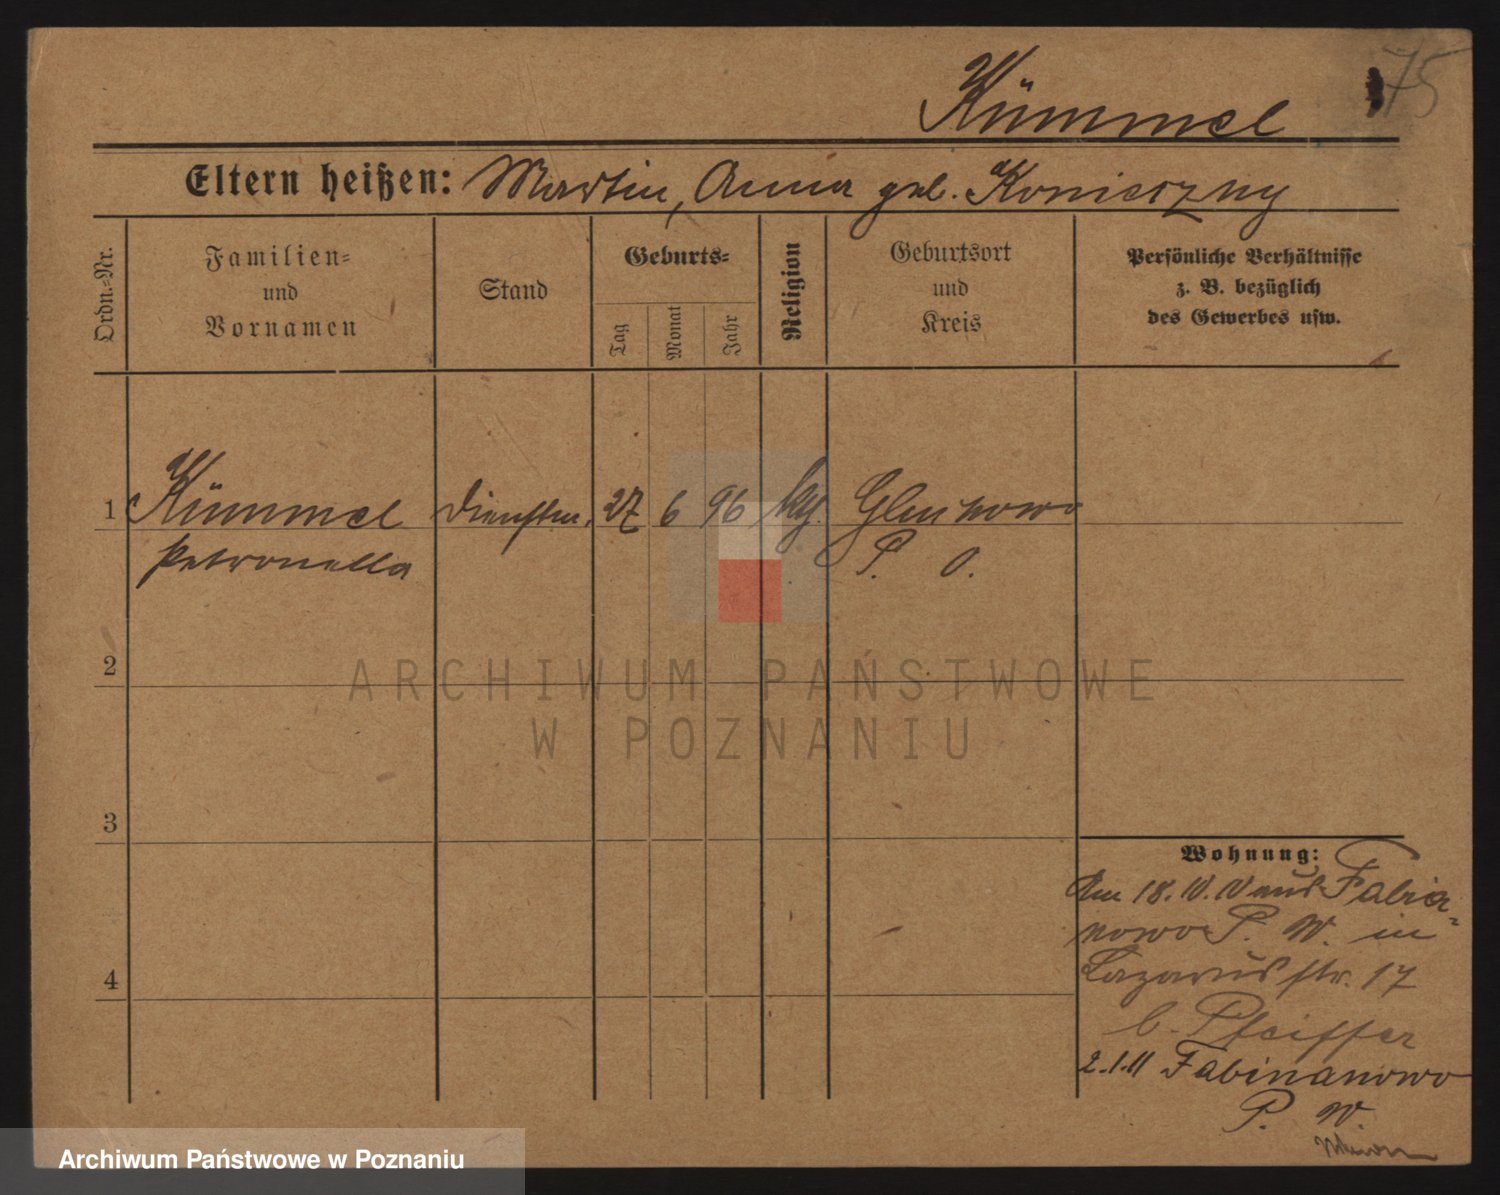 75
Kümmel
Eltern heißen: Martin, Anna geb. Konieczny
Ordn.-Nr.
Familien-
und
Vornamen
Stand
Geburts-
Tag
Monat
Jahr
Religion
Geburtsort
und
Kreis
Persönliche Verhältnisse
z. B. bezüglich
des Gewerbes usw.
1 Kümmel 27 6 96
Petronella P. O.
2
ARCHIWUM PAŃSTWOWE
W POZNANIU
3
4
Wohnung:
Am 18. IV. aus Fabia-
nowo P. W. in
Lazarus str. 17
b. Pfeiffer
2.1.11 Fabinanowo
P. W
Archiwum Państwowe w Poznaniu